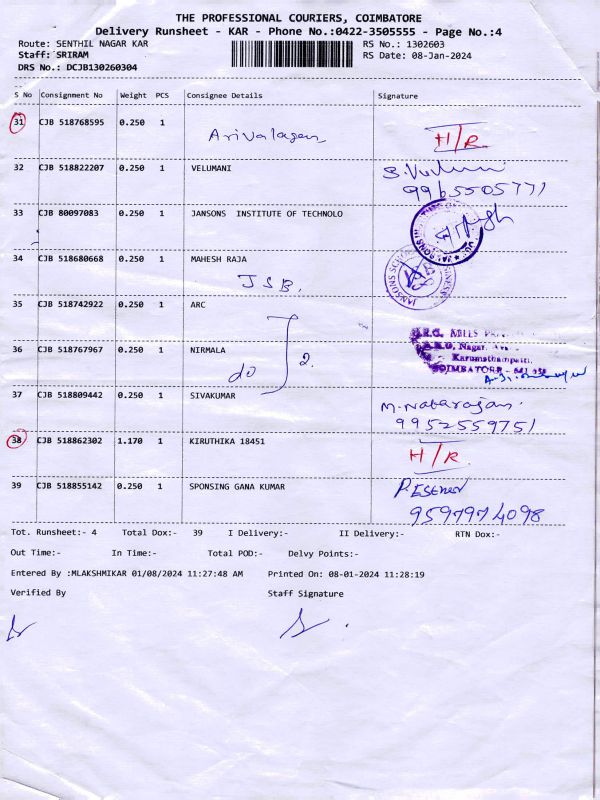 THE PROFESSIONAL COURIERS, COIMBATORE
Delivery Runsheet - KAR - Phone No.:0422-3505555 - Page No.:4
Route: SENTHIL NAGAR KAR RS No.: 1302603
Staff: SRIRAM RS Date: 08-Jan-2024
DRS No.: DCJB130260304
S No Consignment No Weight PCS Consignee Details Signature
31 CJB 518768595 0.250 1 Arivalagan H/R
32 CJB 518822207 0.250 1 VELUMANI
9965505771
33 CJB 80097083 0.250 1 JANSONS INSTITUTE OF TECHNOLO
34 CJB 518680668 0.250 1 MAHESH RAJA
JSB.
35 CJB 518742922 0.250 1 ARC
36 CJB 518767967 0.250 1 NIRMALA
do 2.
MILLS
Nagar,
Karumathampatti,
COIMBATORE
37 CJB 518809442 0.250 1 SIVAKUMAR M. Natarajan.
9952559751
38 CJB 518862302 1.170 1 KIRUTHIKA 18451 H/R
39 CJB 518855142 0.250 1 SPONSING GANA KUMAR
9597974098
Tot. Runsheet:- 4 Total Dox:- 39 I Delivery:- II Delivery:- RTN Dox:-
Out Time:- In Time:- Total POD:- Delvy Points:-
Entered By :MLAKSHMIKAR 01/08/2024 11:27:48 AM Printed On: 08-01-2024 11:28:19
Verified By Staff Signature